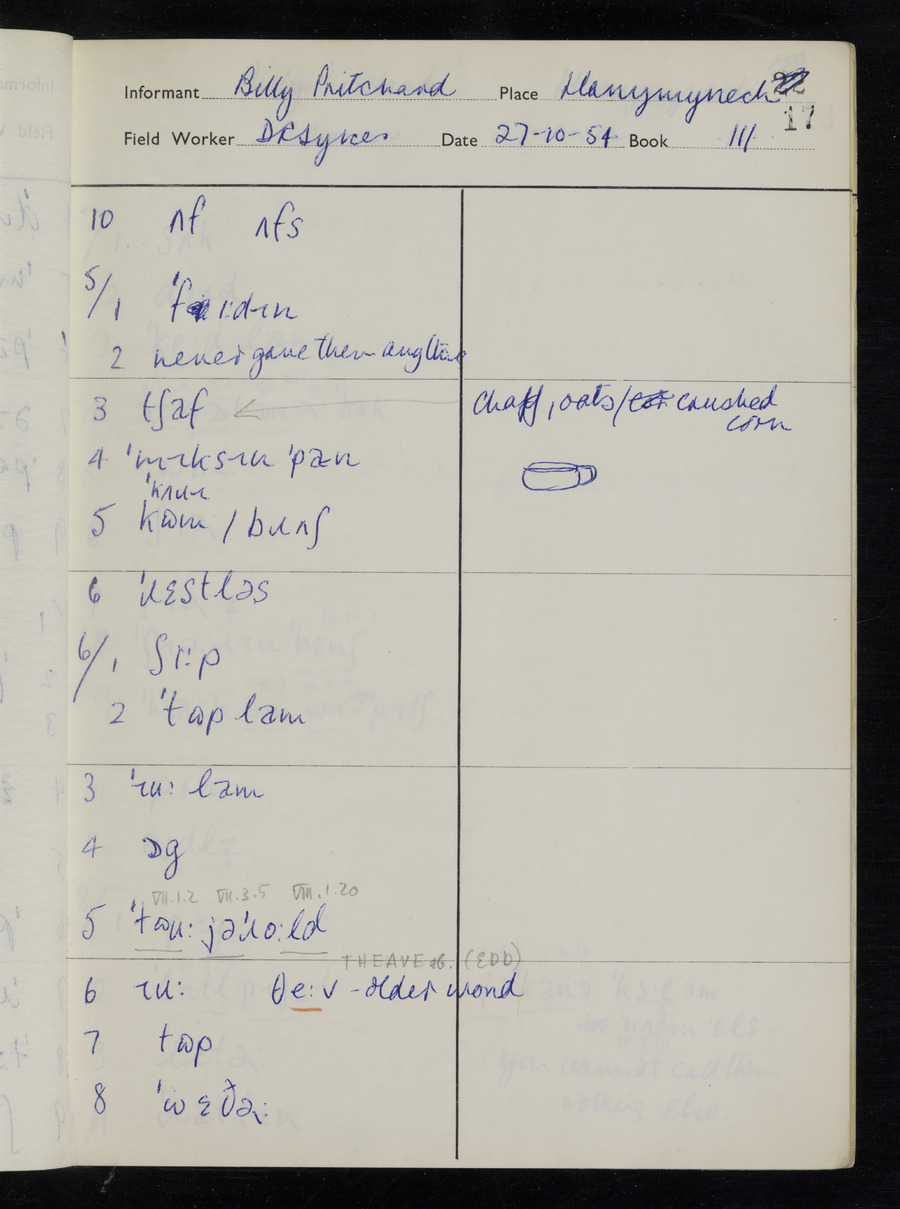 Informant Billy Pritchard Place Llanymynech 22
17
Field Worker DRSykes Date 27-10-54 Book III
10 ʌf ʌfs
5/1 ˈfɪ:dɪn
2 never gave them anything
3 tʃaf chaff, oats/ crushed
corn
4 ˈmɪksɪn ˈpæn
ˈkʌɹɪ
5 kɒm / bɹʌʃ
6 ˈɹɛstləs
6/1 ʃɪ:p
2 ˈtɒp lam
3 ˈɹu: lam
4 ɔg
VII.1.2 VII.3.5 VIII.1.20
5 ˈtəu: jəɹo:ld
THEAVE sb. (EDD)
6 ɹu: θe:v - older word
7 tɒp
8 ˈwɛðə: